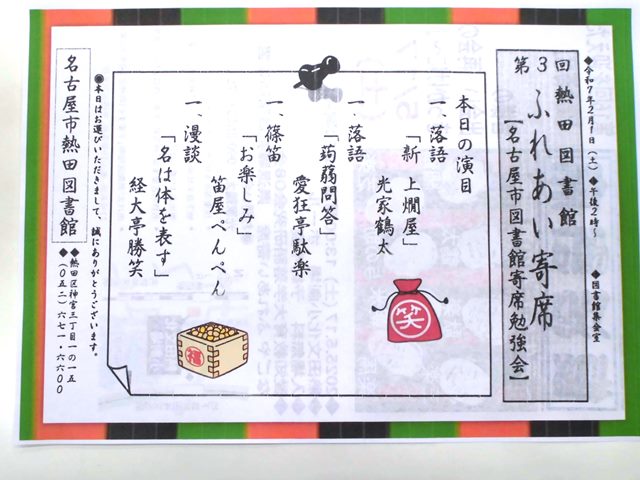 ◆令和7年2月1日（土）◆午後2時～　◆図書館集会室
第3回 熱田図書館
ふれあい寄席
【名古屋市図書館寄席勉強会】
本日の演目
一、落語
「新 上燗屋」
光家鶴太
一、落語
「蒟蒻問答」
愛狂亭駄楽
一、篠笛
「お楽しみ」
笛屋ぺんぺん
一、漫談
「名は体を表す」
経大亭勝笑
笑
福
◉本日はお運びいただきまして、誠にありがとうございます。
名古屋市熱田図書館
◆熱田区神宮三丁目一の一五
◆（〇五二）六七一・六六〇〇